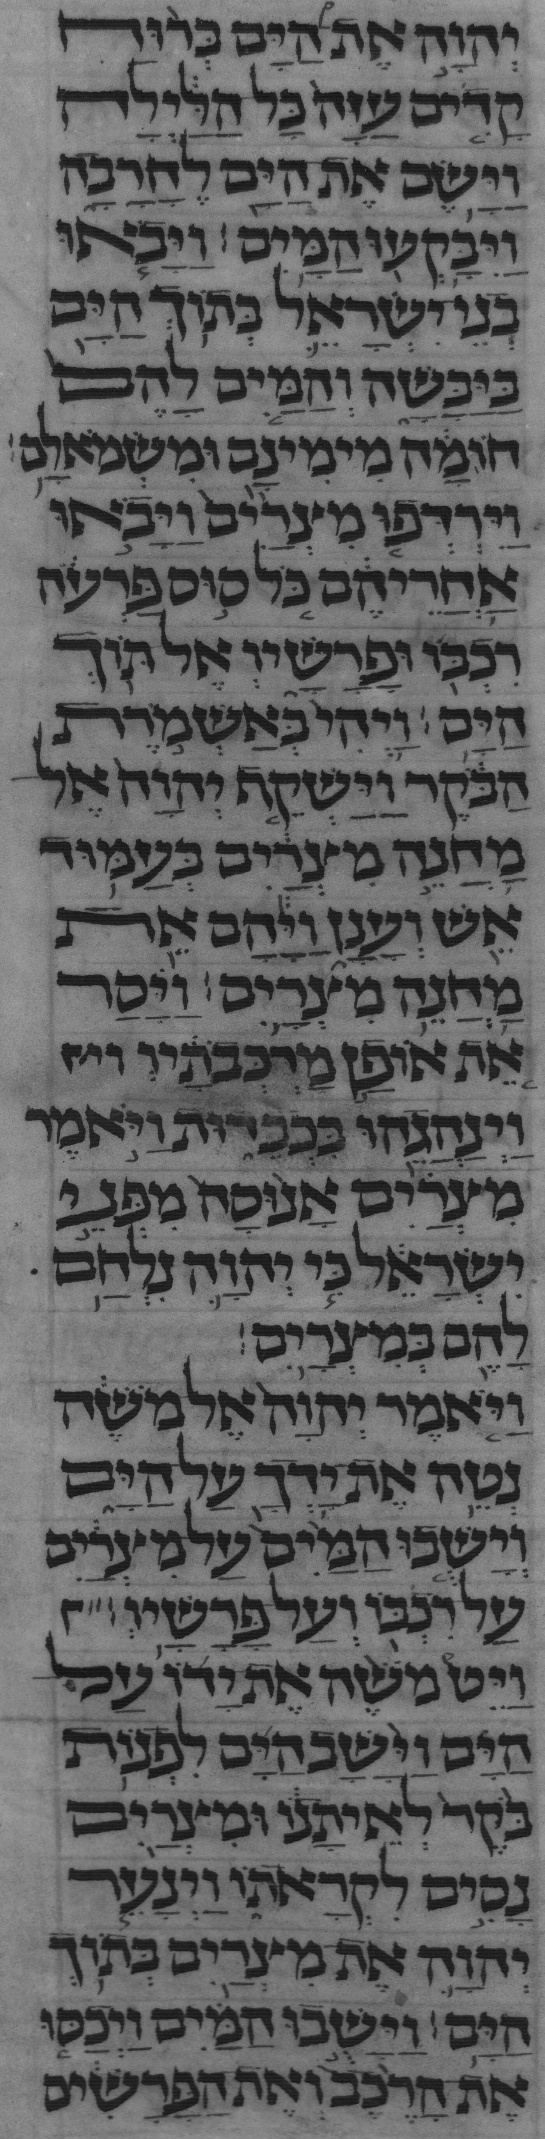 יְהוָ֣ה ׀ אֶת־הַ֠יָּם בְּר֨וּחַ
קָדִ֤ים עַזָּה֙ כָּל־הַלַּ֔יְלָה
וַיָּ֥שֶׂם אֶת־הַיָּ֖ם לֶחָרָבָ֑ה
וַיִּבָּקְע֖וּ הַמָּֽיִם׃ וַיָּבֹ֧אוּ
בְנֵֽי־יִשְׂרָאֵ֛ל בְּת֥וֹךְ הַיָּ֖ם
בַּיַּבָּשָׁ֑ה וְהַמַּ֤יִם לָהֶם֙
חוֹמָ֔ה מִֽימִינָ֖ם וּמִשְּׂמֹאלָֽם׃
וַיִּרְדְּפ֤וּ מִצְרַ֙יִם֙ וַיָּבֹ֣אוּ
אַחֲרֵיהֶ֔ם כֹּ֚ל ס֣וּס פַּרְעֹ֔ה
רִכְבּ֖וֹ וּפָרָשָׁ֑יו אֶל־תּ֖וֹךְ
הַיָּֽם׃ וַֽיְהִי֙ בְּאַשְׁמֹ֣רֶת
הַבֹּ֔קֶר וַיַּשְׁקֵ֤ף יְהוָה֙ אֶל־
מַחֲנֵ֣ה מִצְרַ֔יִם בְּעַמּ֥וּד
אֵ֖שׁ וְעָנָ֑ן וַיָּ֕הָם אֵ֖ת
מַחֲנֵ֥ה מִצְרָֽיִם׃ וַיָּ֗סַר
אֵ֚ת אֹפַ֣ן מַרְכְּבֹתָ֔יו
וַֽיְנַהֲגֵ֖הוּ בִּכְבֵדֻ֑ת וַיֹּ֣אמֶר
מִצְרַ֗יִם אָנ֙וּסָה֙ מִפְּנֵ֣י
יִשְׂרָאֵ֔ל כִּ֣י יְהוָ֔ה נִלְחָ֥ם
לָהֶ֖ם בְּמִצְרָֽיִם׃
וַיֹּ֤אמֶר יְהוָה֙ אֶל־מֹשֶׁ֔ה
נְטֵ֥ה אֶת־יָדְךָ֖ עַל־הַיָּ֑ם
וְיָשֻׁ֤בוּ הַמַּ֙יִם֙ עַל־מִצְרַ֔יִם
עַל־רִכְבּ֖וֹ וְעַל־פָּרָשָֽׁיו׃
וַיֵּט֩ מֹשֶׁ֨ה אֶת־יָד֜וֹ עַל־
הַיָּ֗ם וַיָּ֨שָׁב הַיָּ֜ם לִפְנ֥וֹת
בֹּ֙קֶר֙ לְאֵ֣יתָנ֔וֹ וּמִצְרַ֖יִם
נָסִ֣ים לִקְרָאת֑וֹ וַיְנַעֵ֧ר
יְהוָ֛ה אֶת־מִצְרַ֖יִם בְּת֥וֹךְ
הַיָּֽם׃ וַיָּשֻׁ֣בוּ הַמַּ֗יִם וַיְכַסּ֤וּ
אֶת־הָרֶ֙כֶב֙ וְאֶת־הַפָּ֣רָשִׁ֔ים